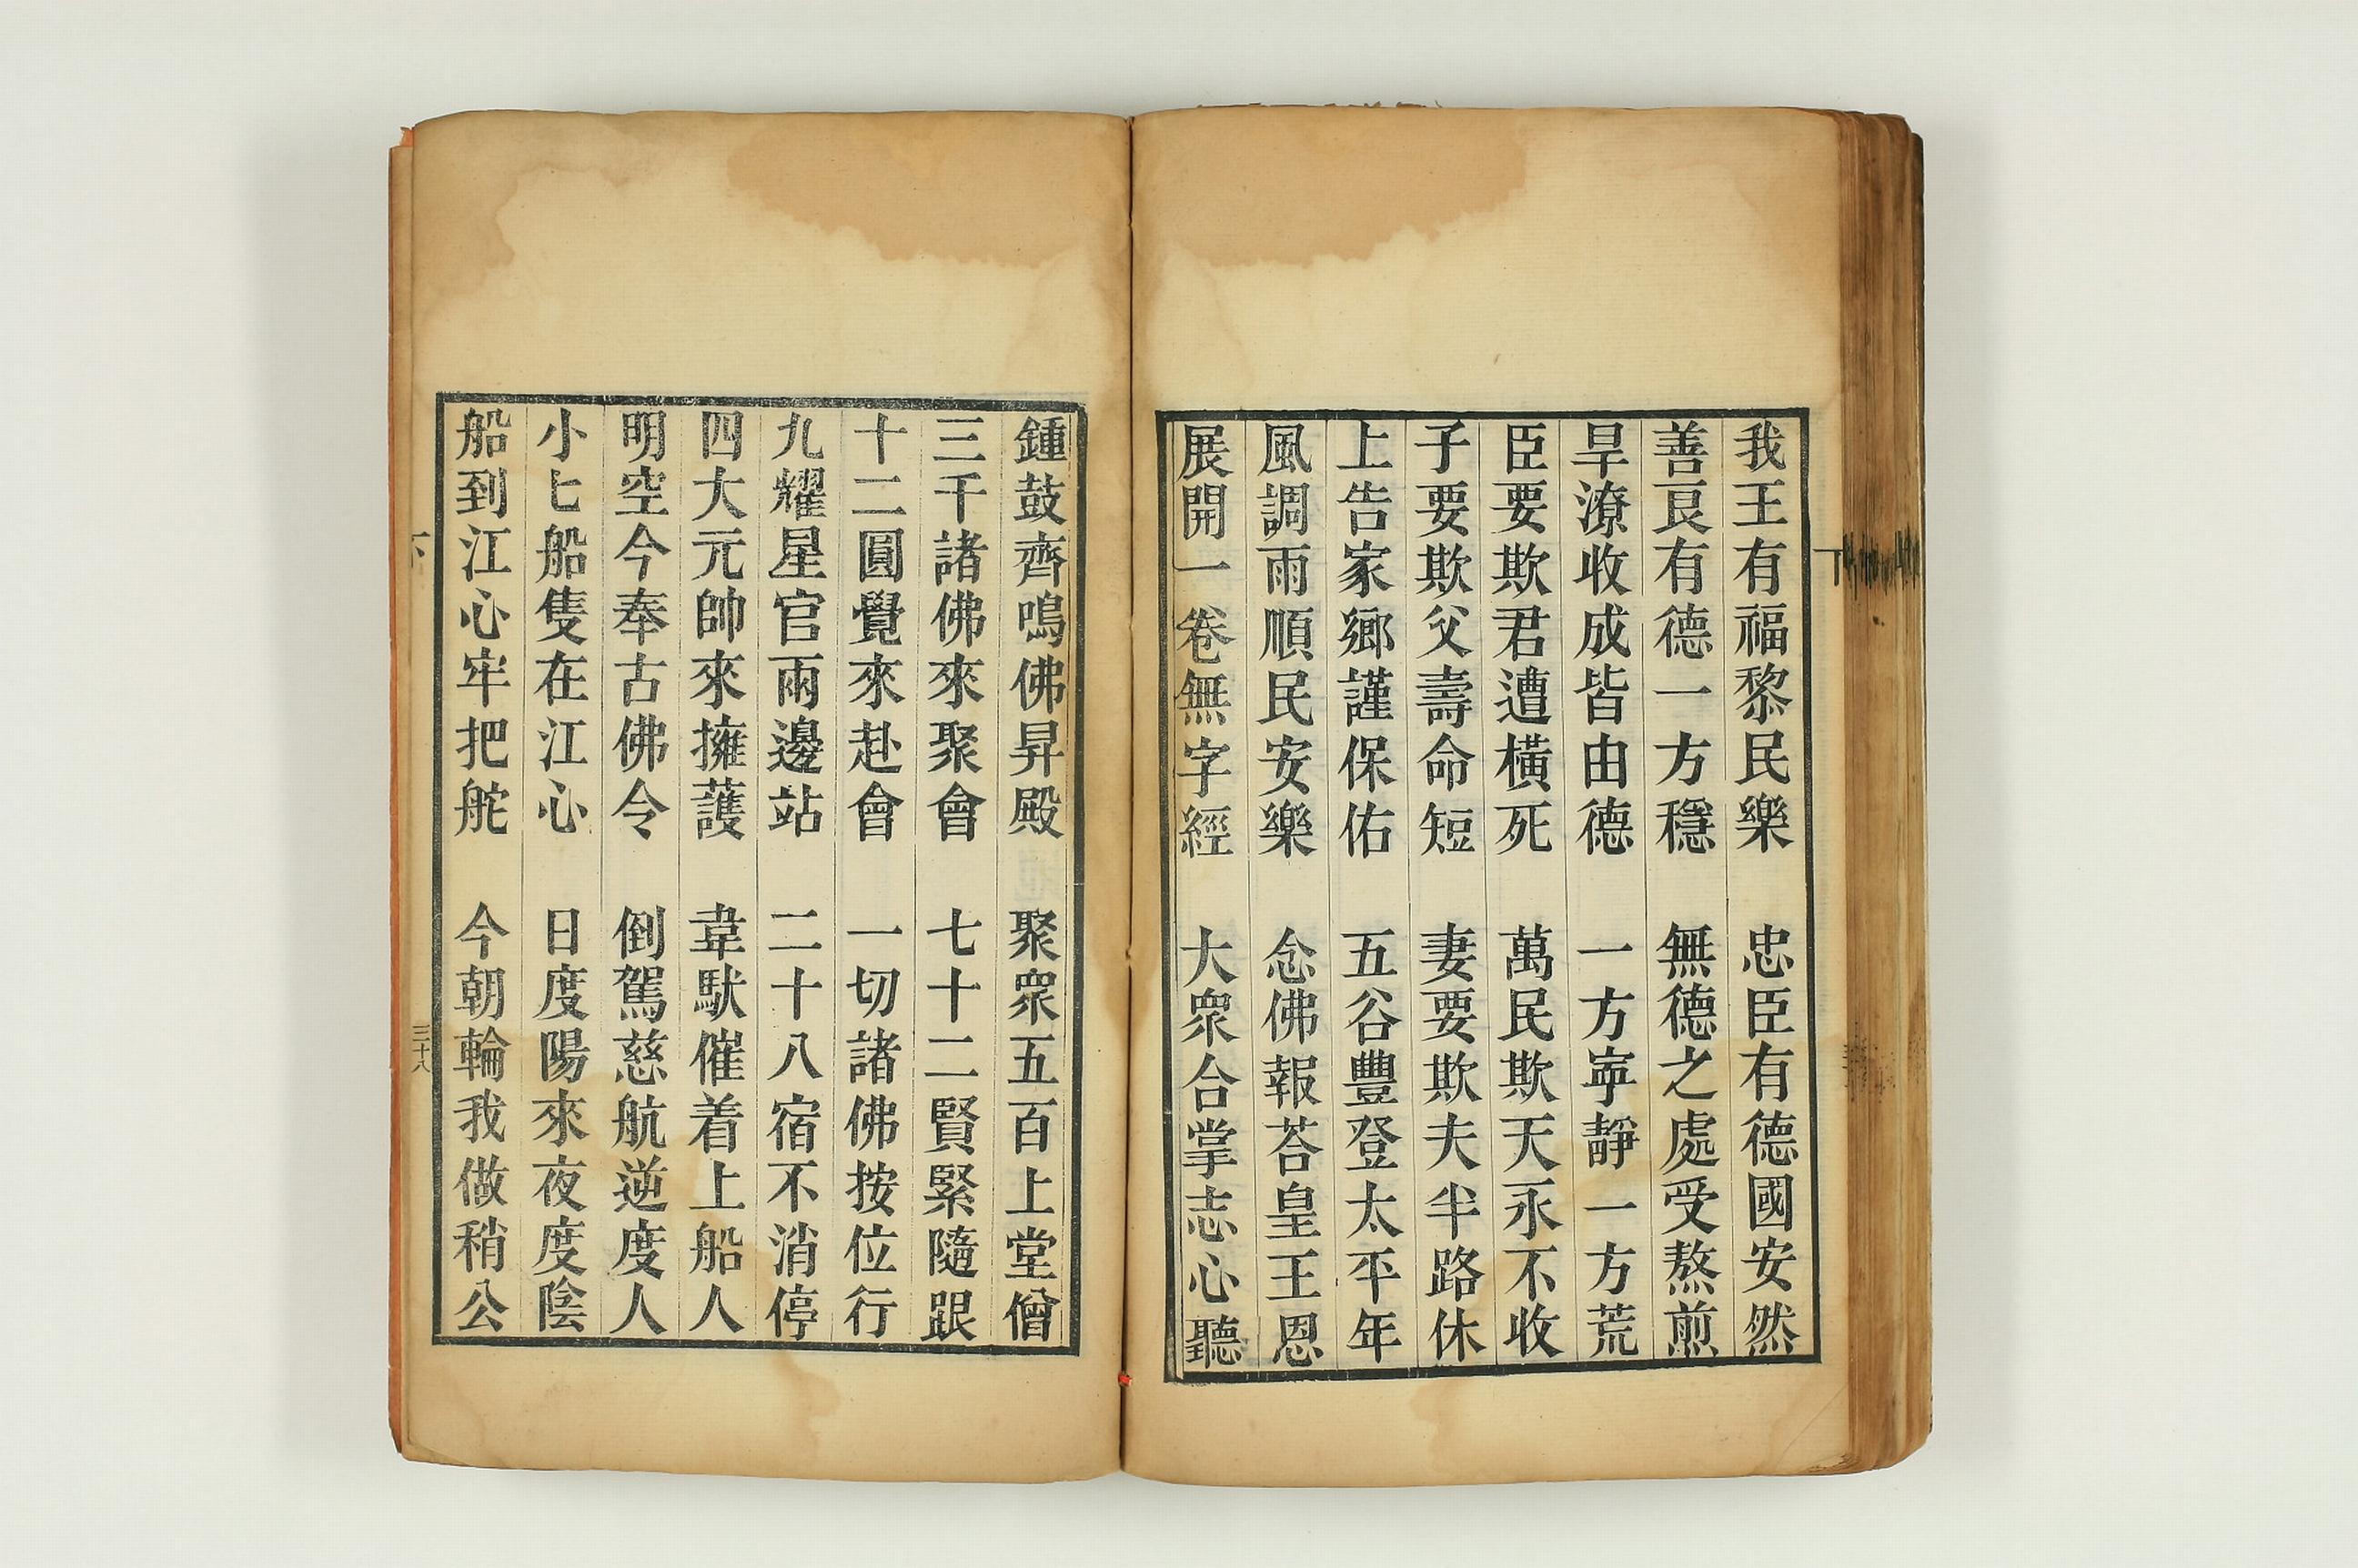 我王有福黎民樂　忠臣有德國安然
善良有德一方穩　無德之處受熬煎
旱潦收成皆由德　一方寧靜一方荒
臣要欺君遭橫死　萬民欺天永不收
子要欺父壽命短　妻要欺夫半路休
上告家鄉謹保佑　五谷豐登太平年
風調雨順民安樂　念佛報荅皇王恩
展開一卷無字經　大衆合掌志心聽
下
鍾鼓齊鳴佛昇殿　聚衆五百上堂僧
三千諸佛來聚會　七十二賢緊隨跟
十二圓覺來赴會　一切諸佛按位行
九耀星官兩邊站　二十八宿不消停
四大元帥來擁護　韋馱催着上船人
明空今奉古佛令　倒駕慈航逆度人
小匕船隻在江心　日度陽來夜度陰
船到江心牢把舵　今朝輪我做稍公
下
三十八